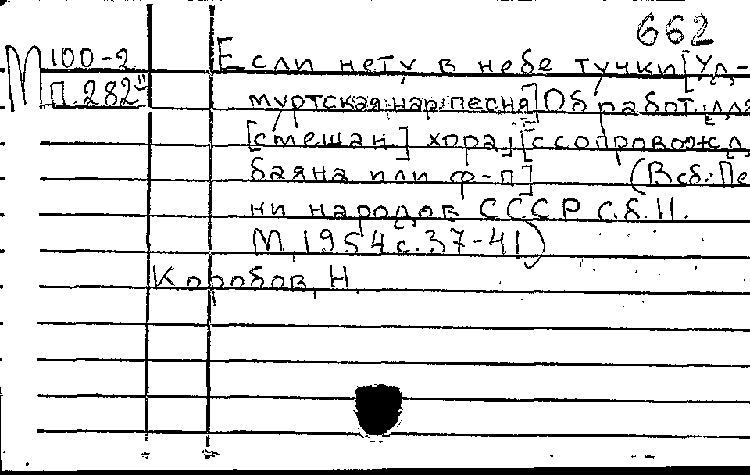 662
М 100-2 Если нету в небе тучки [Уд-
П.282" муртская нар. песня] Обработ. для
[смешан] хора, [с сопровожд,
баяна или ф-п] (В сб: Пе
ни народов СССР с.б. II.
М, 1954 с. 37-41)
Коробов, Н.